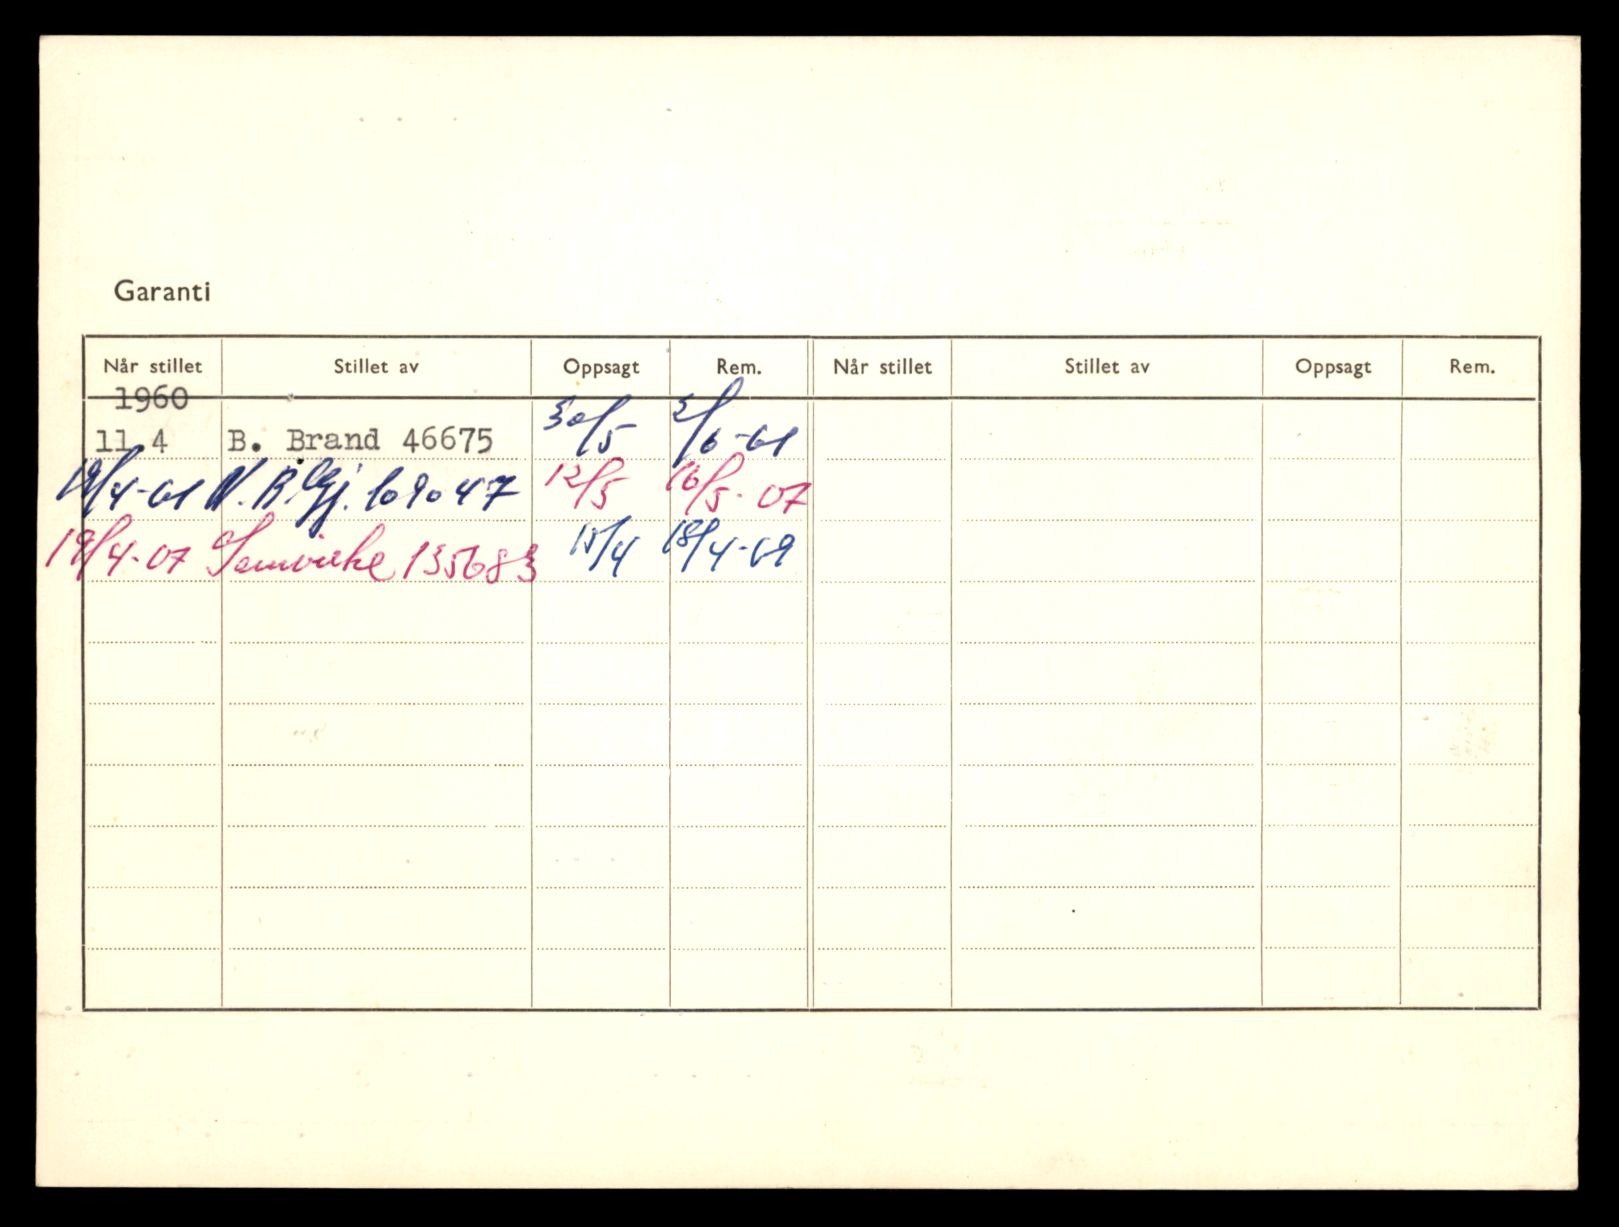 Garanti
Når stillet Stillet av Oppsagt Rem. Når stillet Stillet av Oppsagt Rem.
1960
11.4 B. Brand 46675 30/5 2/6-61
19/4-61 N. Bilgj. 609047 12/5 16/5-67
19/4-67 Samvirke 135683 15/4 18/4-69